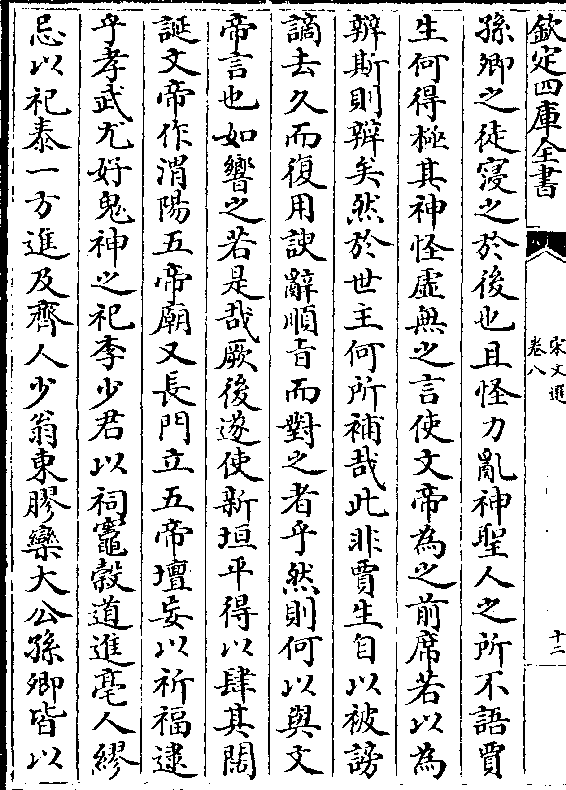 欽定四庫全書
宋文選
卷八
十二
孫卿之徒寖之於後也且怪力亂神聖人之所不語賈
生何得極其神怪虛無之言使文帝為之前席若以為
辯斯則辯矣然於世主何所補哉此非賈生自以被謗
謫去久而復用諛辭順旨而對之者乎然則何以與文
帝言也如響之若是哉厥後遂使新垣平得以肆其闊
誕文帝作渭陽五帝廟又長門立五帝壇妄以祈福逮
乎孝武尤好鬼神之祀李少君以祠竈穀道進亳人繆
忌以祀泰一方進及齊人少翁東膠欒大公孫卿皆以